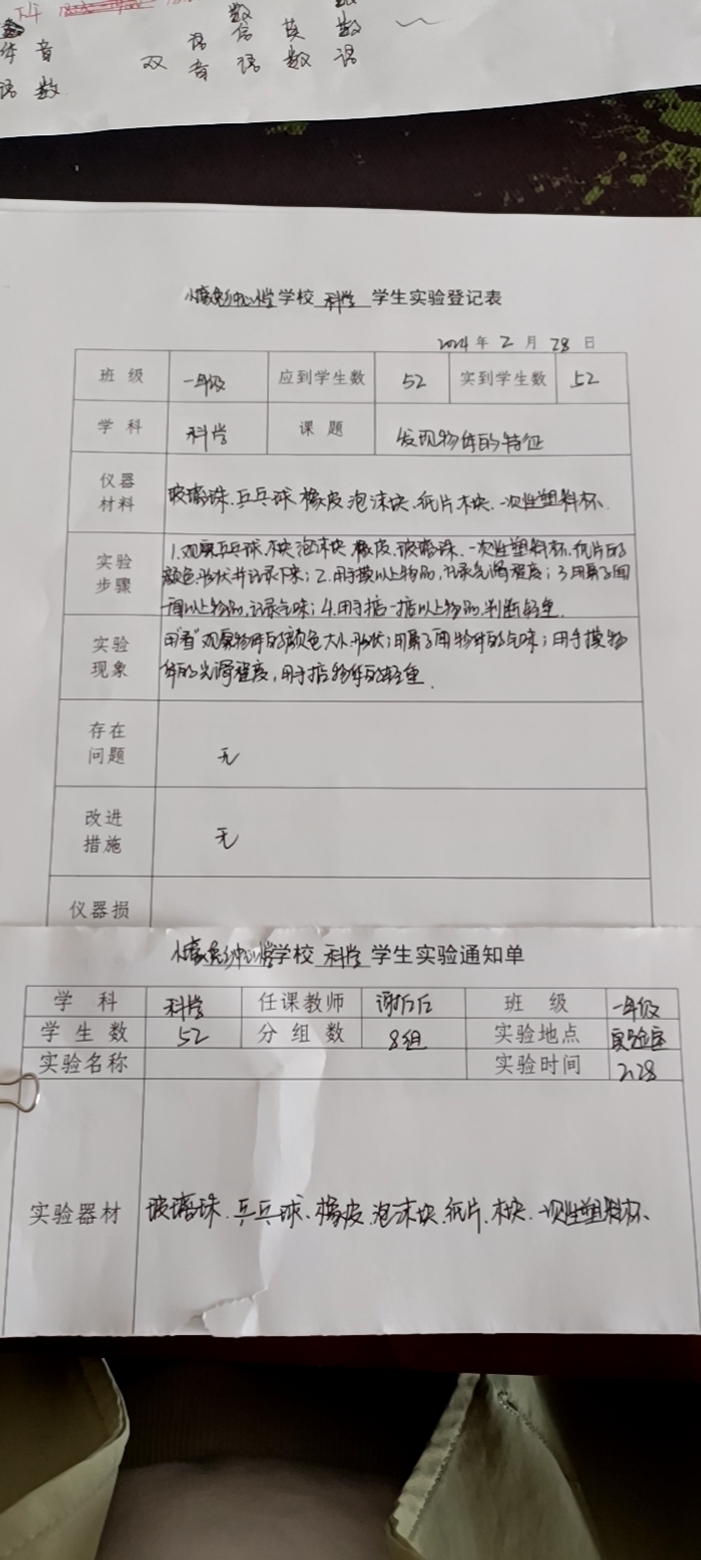 体 音
语 数
数
语 信 英 数
双 音 语 数 语
学校 科学 学生实验登记表
2024 年 2 月 28 日
班 级 一年级 应到学生数 52 实到学生数 52
学 科 科学 课 题 发现物体的特征
仪器材料 玻璃珠、乒乓球、橡皮、泡沫块、纸片、木块、一次性塑料杯、
实验步骤 1.观察乒乓球、木块、泡沫块、橡皮、玻璃珠、一次性塑料杯、纸片的
颜色、形状并记录下来；2.用手摸以上物品，记录光滑程度；3.用鼻子闻
一闻以上物品，记录气味；4.用手掂一掂以上物品，判断轻重．
实验现象 用“看”观察物体的颜色大小、形状；用鼻子闻物体的气味；用手摸物
体的光滑程度，用手掂物体的轻重．
存在问题 无
改进措施 无
仪器损
学校 科学 学生实验通知单
学 科 科学 任课教师 班 级 一年级
学 生 数 52 分 组 数 8组 实验地点 实验室
实验名称 实验时间 2.28
实验器材 玻璃珠、乒乓球、橡皮、泡沫块、纸片、木块、一次性塑料杯、